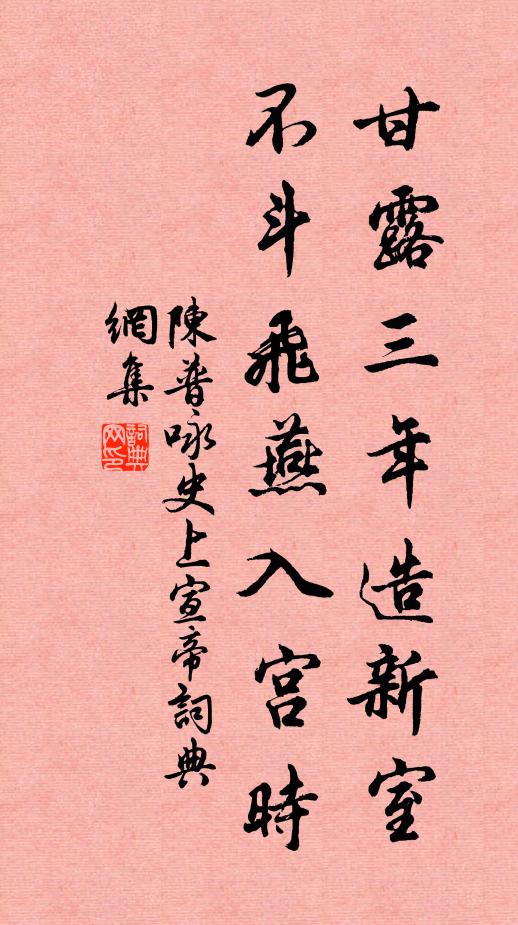 甘露三年造新室
不斗飛燕入宮時
陳普咏史上宣帝詞典
網集
詞典網印